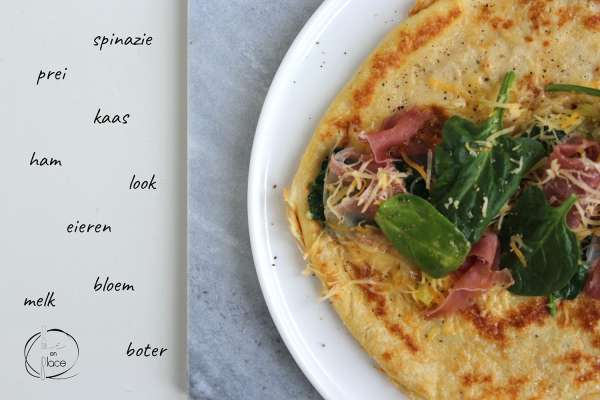 spinazie
prei
kaas
ham
look
eieren
bloem
melk
boter
on
place